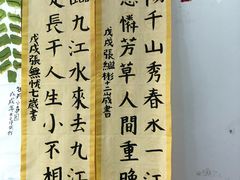 陽千山秀春水一江
憐芳草人間重晚
戊戌張無彬十二歲書
臨九江水來去九江
長干人生小不相
戊戌張無忧七歲書